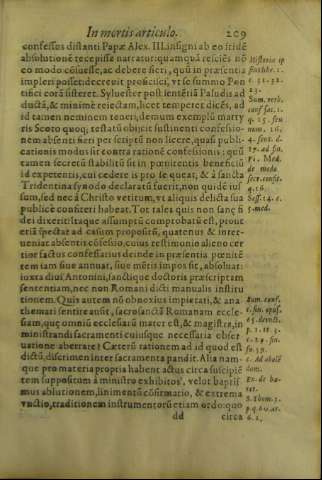 In mortis articulo. 209
confessus distanti Papæ Alex. III. insigni ab eo fridē
absolutionē recepisse narratur: quamquā reiciēs nō
eo modo cōsuesse, ac debere fieri, quū in præsentia
impleri posset: decrevit proficisci, vt se summo Pon
tifici corā sisteret. Sylvester post sentētiā Paludis ad
ductā, & minimè reiectam, licet temperet dicēs, ad
id tamen neminem teneri, demum exemplū marty
ris Scoto quoq; testatū obijcit sustinenti confessio-
nem absenti fieri per scriptū non licere, quasi publi-
cationis modus sit secreto rationē confessionis; quū
tamen secretū stabilitū sit in pœnitentis beneficiū
id expetentis, cui cedere is pro se queat, & à sancta
Tridentina synodo declaratū fuerit, non quidē ius-
sum, sed nec à Christo vetitum, vt aliquis delicta sua
publicè confiteri habeat. Tot talesq; quis non sanè fi
dei dixerit? itaque assumptū comprobatū est, priori
eiōi spectat ad casum propositū, quatenus & inter-
veniat absentis cōfessio, cuius testimonio alieno cer
tior factus confessarius deinde in præsentia pœnitē
tem iam siue annuat, siue mētis impos sit, absoluat:
iuxta diui Antonini, sanctique doctoris præscriptam
sententiam, nec non Romani dicti manualis institu
tionem. Quis autem nō obnoxius impietati, & ana
themati sentire ausit, sacrosanctā Romanam eccle-
siam, quę omniū ecclesiarū mater est, & magistra, in
ministrandi sacramenti cuiusque necessaria obser
uatione aberrare? Cæterū rationem ad id quod est
dictū, discrimen inter sacramenta pandit. Alia nam-
que pro materia propria habent actus circa suscipiē
tem suppositum à ministro exhibitos, velot baptis
mus ablutionem, linimentū cōfirmatio, & extrema
vnctio, traditionem instrumentorū etiam ordo: quo
dd circa
Historia ip
sius libr. 1.
c. 31. 32.
23.
Sum. verb.
conf. sac. 1.
q. 25. seu
num. 16.
4. sent. d.
17. ad fin.
Pi. Med.
de modo
secr. confit.
q. 16.
Sess. 14. c.
5. med.
Sum. conf.
c. fin. opus.
65. devict.
p. 2. tit. 3.
c. 24. fin.
fu. 38.
c. Ad abolē
dam.
Ex. de ha-
ret.
S. Thom. 3.
p. q. 60. ar.
6. 2.